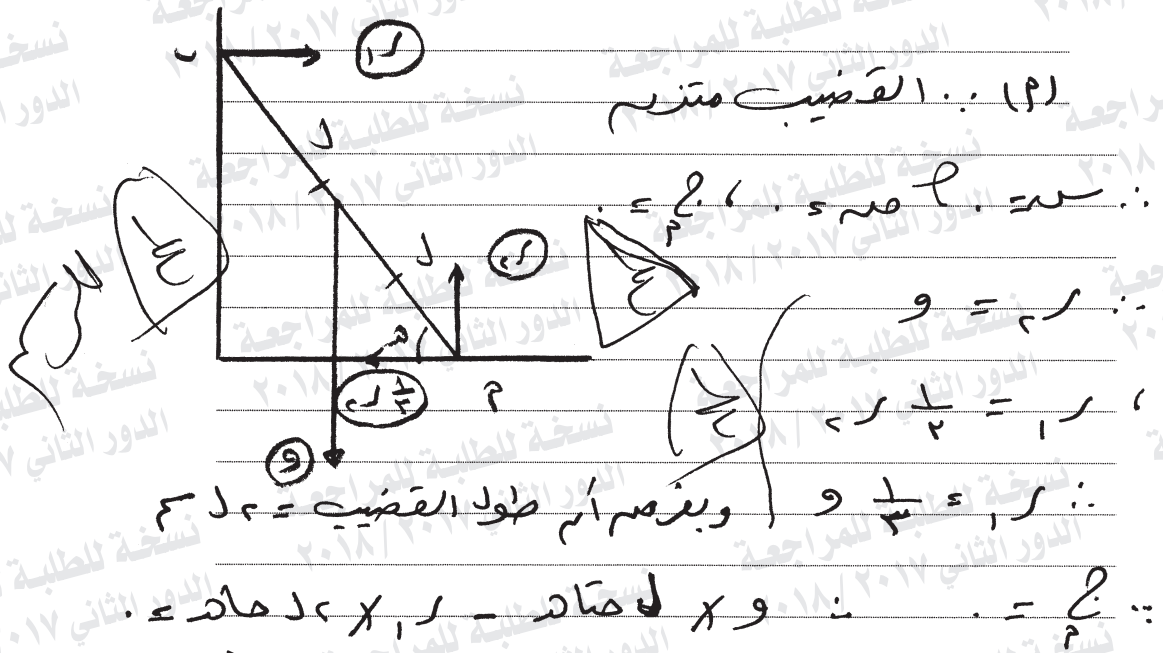 (م) ∵ القضيب متزن
∴ س = ٠ ، ص = ٠ ، ج م = ٠
∴ ر٢ = و
، ر١ = ١/٢ ر٢
∴ ر١ = ١/٣ و وبفرض أن طول القضيب = ٢ل
∵ ج م = ٠ ∴ و × ل حتاهـ - ر١ × ٢ل حاهـ = ٠
ب
ر١
ل
ل
ر٢
هـ
١/٢ ر٢
م
و
نسخة للطلبة للمراجعة
الدور الثاني ٢٠١٧ / ٢٠١٨